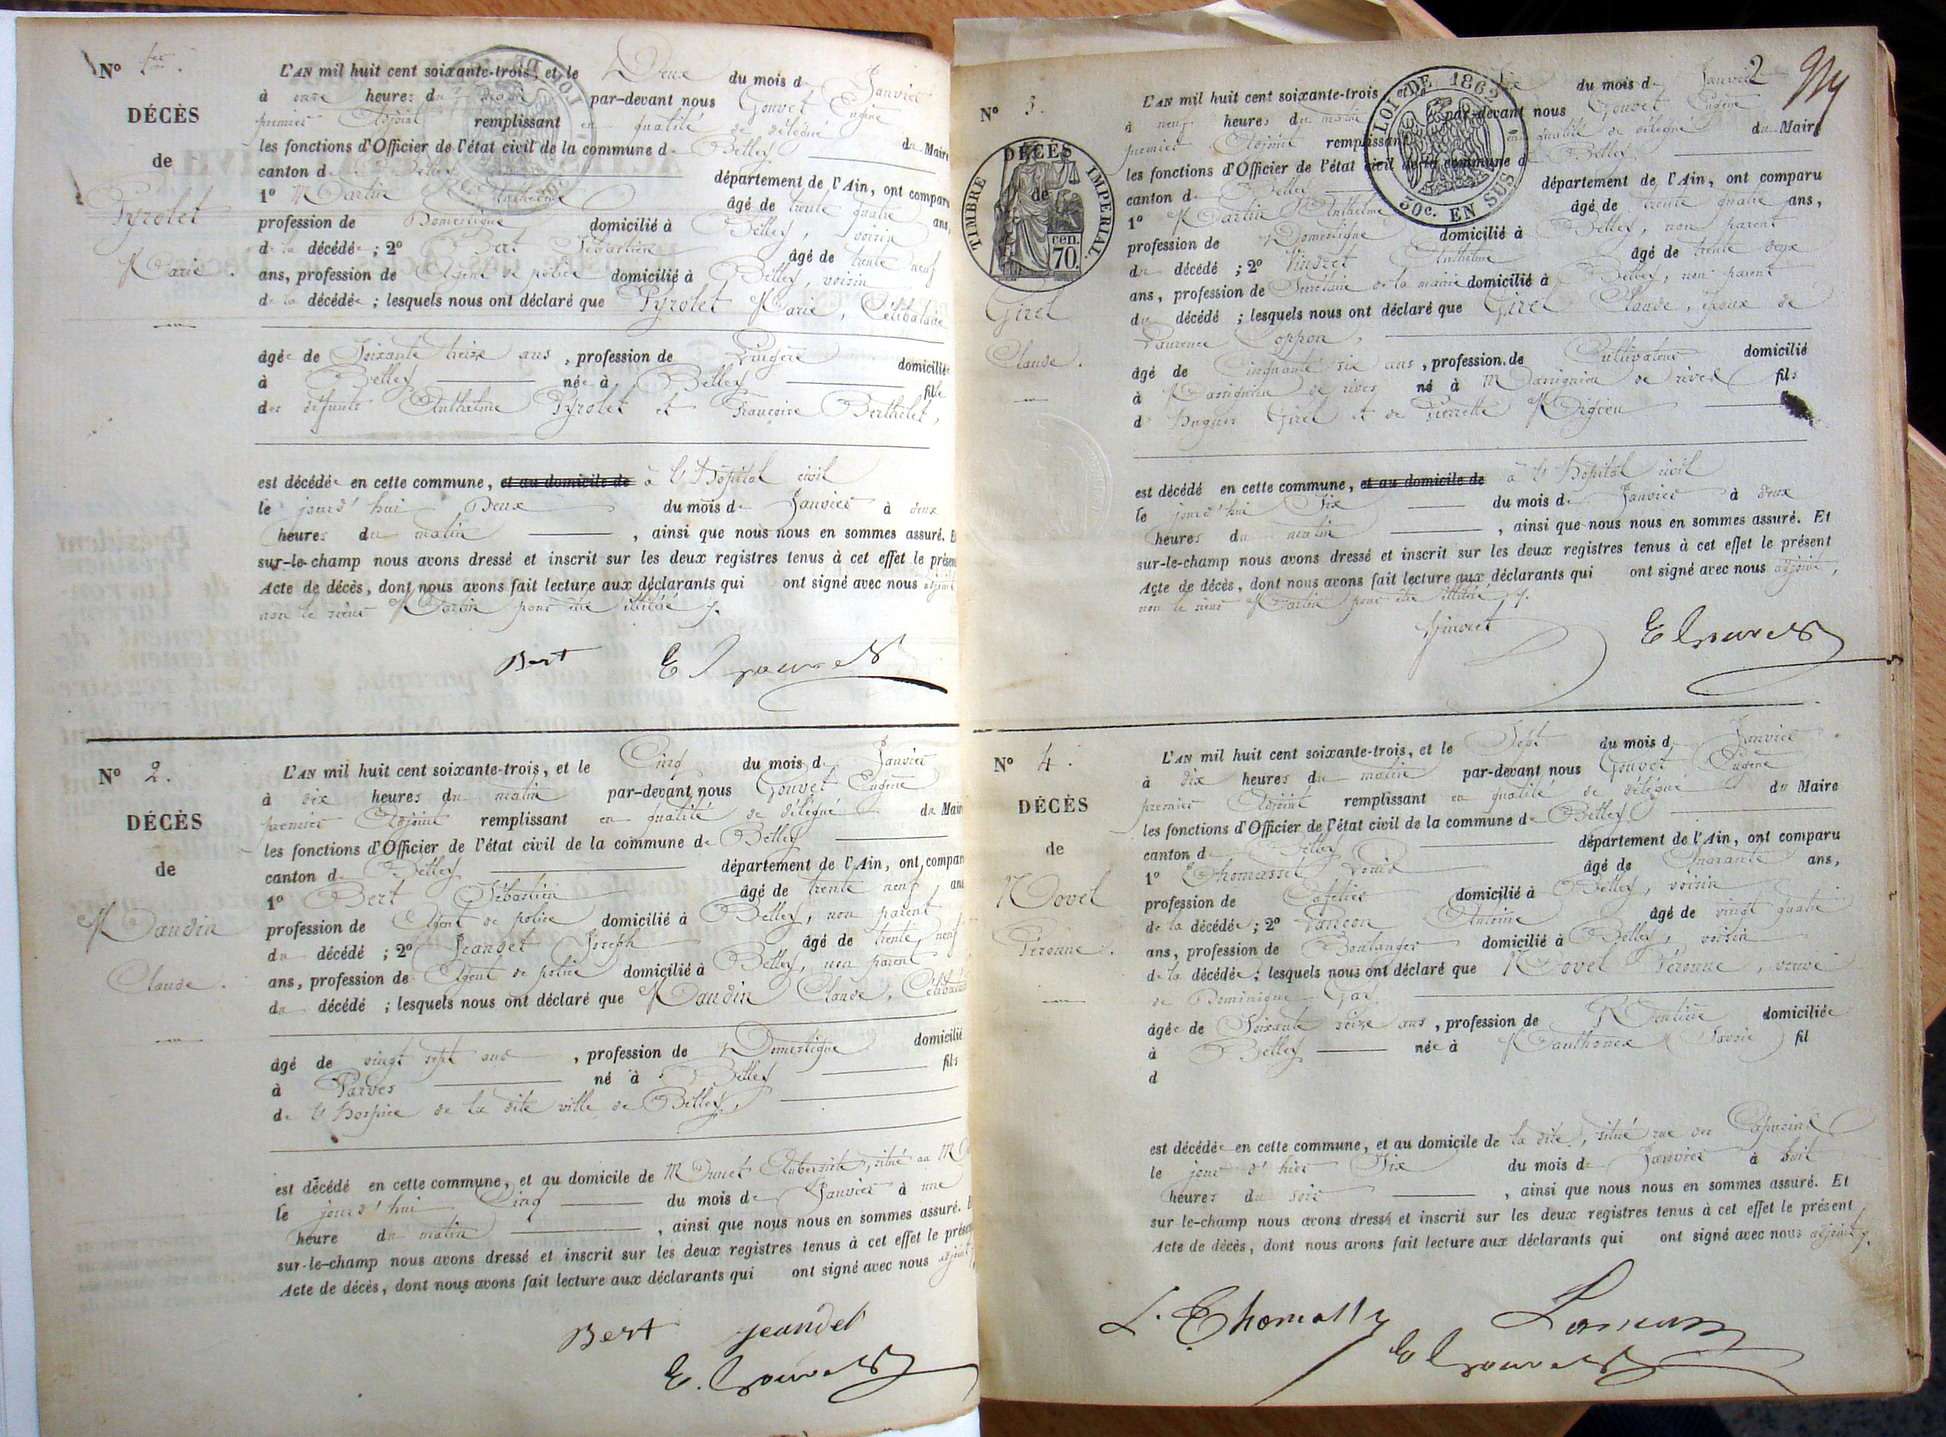 N° 1er.
DÉCÈS
de
Pyrolet
Marie.
L'AN mil huit cent soixante-trois, et le Deux du mois de Janvier
à onze heures du matin par-devant nous Gouvet Eugène
premier Adjoint remplissant en qualité de délégué du Maire
les fonctions d'Officier de l'état civil de la commune de Belley
canton de Belley département de l'Ain, ont comparu
1° Martin Anthelme âgé de trente quatre ans,
profession de Domestique domicilié à Belley, voisin
de la décédée ; 2° Bert Sébastien âgé de trente neuf
ans, profession de Agent de police domicilié à Belley, voisin
de la décédée ; lesquels nous ont déclaré que Pyrolet Marie, Célibataire
âgée de Soixante treize ans, profession de Lingère domiciliée
à Belley née à Belley fille
des défunts Anthelme Pyrolet et Françoise Berthelet,
est décédée en cette commune, et au domicile de à l'Hôpital civil
le jourd'hui Deux du mois de Janvier à deux
heures du matin, ainsi que nous nous en sommes assuré. Et
sur-le-champ nous avons dressé et inscrit sur les deux registres tenus à cet effet le présent
Acte de décès, dont nous avons fait lecture aux déclarants qui ont signé avec nous adjoint
non le sieur Martin pour être illitéré
Bert E Gouvet
N° 2.
DÉCÈS
de
Mandin
Claude.
L'AN mil huit cent soixante-trois, et le Cinq du mois de Janvier
à dix heures du matin par-devant nous Gouvet Eugène
premier Adjoint remplissant en qualité de délégué du Maire
les fonctions d'Officier de l'état civil de la commune de Belley
canton de Belley département de l'Ain, ont comparu
1° Bert Sébastien âgé de trente neuf ans
profession de Agent de police domicilié à Belley, non parent
du décédé ; 2° Jeandet Joseph âgé de trente neuf
ans, profession de Agent de police domicilié à Belley, non parent
du décédé ; lesquels nous ont déclaré que Mandin Claude, Célibataire
âgé de vingt sept ans, profession de Domestique domicilié
à Parves né à Belley fils
de l'hospice de la dite ville de Belley,
est décédé en cette commune, et au domicile de M Aubergiste, situé au
le jourd'hui Cinq du mois de Janvier à une
heure du matin, ainsi que nous nous en sommes assuré. Et
sur-le-champ nous avons dressé et inscrit sur les deux registres tenus à cet effet le présent
Acte de décès, dont nous avons fait lecture aux déclarants qui ont signé avec nous adjoint
Bert jeandet
E. Gouvet
2
N° 3.
DÉCÈS
de
TIMBRE IMPERIAL.
cen.
70
Girel
Claude.
LOI DE 1862
30c. EN SUS
L'AN mil huit cent soixante-trois du mois de Janvier
à neuf heures du matin par-devant nous Gouvet Eugène
premier Adjoint remplissant en qualité de délégué du Maire
les fonctions d'Officier de l'état civil de la commune de Belley
canton de Belley département de l'Ain, ont comparu
1° Martin Anthelme âgé de trente quatre ans,
profession de Domestique domicilié à Belley, non parent
du décédé ; 2° Vincet Anthelme âgé de trente deux
ans, profession de Secrétaire de la mairie domicilié à Belley, non parent
du décédé ; lesquels nous ont déclaré que Girel Claude, époux de
Laurence Coppon,
âgé de Cinquante six ans, profession de Cultivateur domicilié
à Massignieu de rives né à Massignieu de rives fils
d Hugues Girel et de Pierrette Digieu
est décédé en cette commune, et au domicile de à l'Hôpital civil
le jourd'hui Six du mois de Janvier à deux
heures du matin, ainsi que nous nous en sommes assuré. Et
sur-le-champ nous avons dressé et inscrit sur les deux registres tenus à cet effet le présent
Acte de décès, dont nous avons fait lecture aux déclarants qui ont signé avec nous adjoint,
non le sieur Martin pour être illitéré
E Gouvet
N° 4.
DÉCÈS
de
Novel
Péronne.
L'AN mil huit cent soixante-trois, et le Sept du mois de Janvier
à dix heures du matin par-devant nous Gouvet Eugène
premier Adjoint remplissant en qualité de délégué du Maire
les fonctions d'Officier de l'état civil de la commune de Belley
canton de Belley département de l'Ain, ont comparu
1° Thomasset Louis âgé de Quarante ans,
profession de Cafetier domicilié à Belley, voisin
de la décédée ; 2° Antoine âgé de vingt quatre
ans, profession de Boulanger domicilié à Belley, voisin
de la décédée ; lesquels nous ont déclaré que Novel Péronne, veuve
de Dominique
âgée de Soixante seize ans, profession de Rentière domiciliée
à Belley née à Nanthonex (Savoie) fil
d
est décédée en cette commune, et au domicile de la dite, situé rue des Capucins
le jour d'hier Six du mois de Janvier à huit
heures du soir, ainsi que nous nous en sommes assuré. Et
sur le-champ nous avons dressé et inscrit sur les deux registres tenus à cet effet le présent
Acte de décès, dont nous avons fait lecture aux déclarants qui ont signé avec nous adjoint
E Gouvet